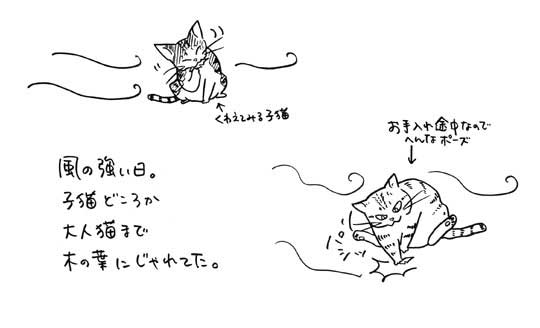 くわえてみる子猫
お手入れ途中なので
へんなポーズ
風の強い日。
子猫どころか
大人猫まで
木の葉にじゃれてた。
パシ
パシッ